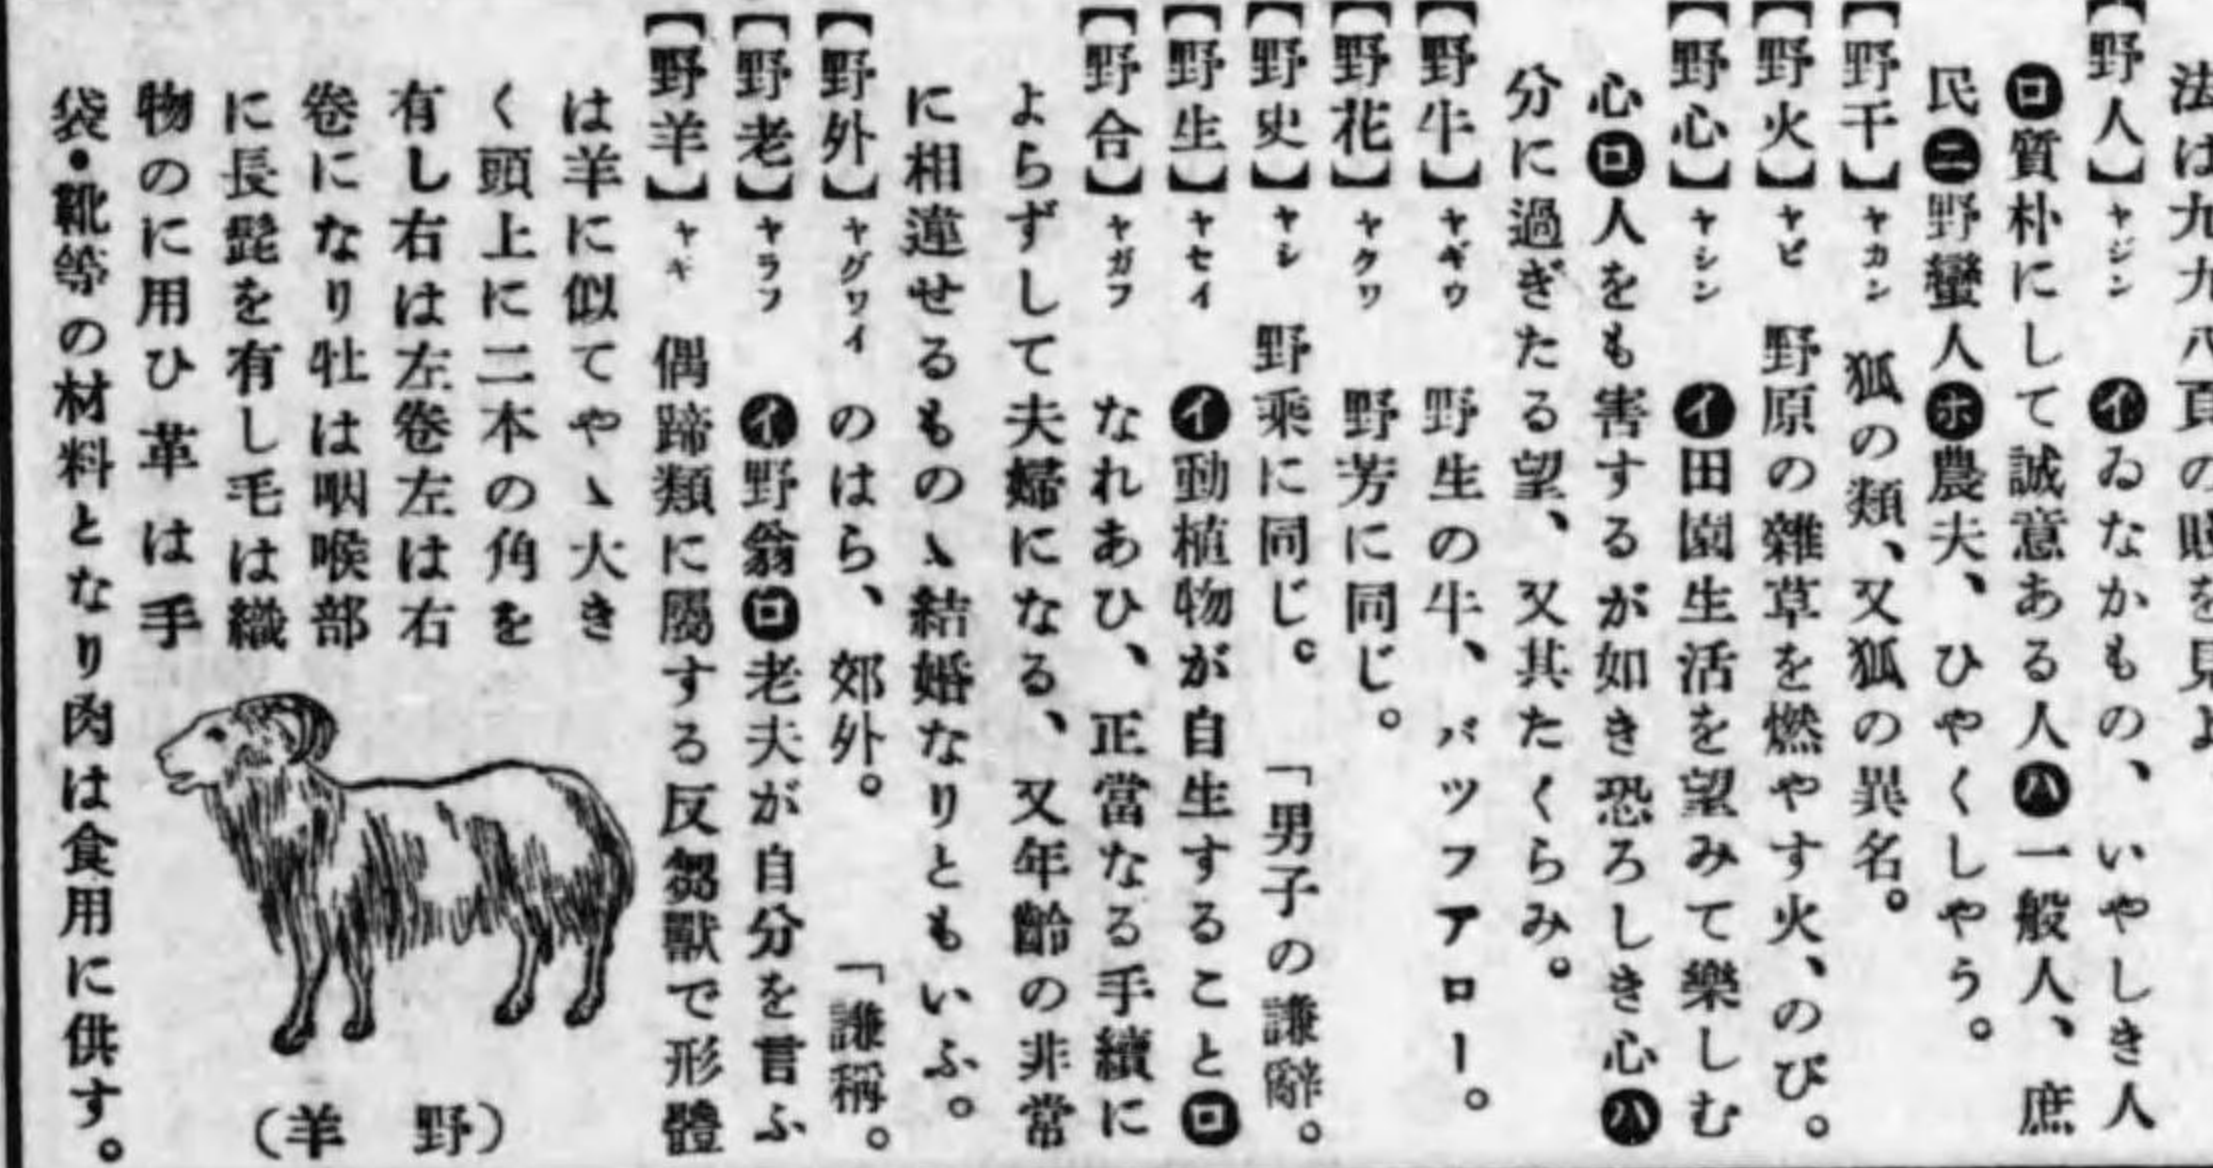 法は九九八頁の
【野人】ヤジン ㋑ゐなかもの、いやしき人
㋺質朴にして誠意ある人㋩一般人、庶
民㋥野蠻人㋭農夫、ひやくしやう。
【野干】ヤカン 狐の類、又狐の異名。
【野火】ヤビ 野原の雜草を燃やす火、のび。
【野心】ヤシン ㋑田園生活を望みて樂しむ
心㋺人をも害するが如き恐ろしき心㋩
分に過ぎたる望、又其たくらみ。
【野牛】ヤギウ 野生の牛、バツフアロー。
【野花】ヤクワ 野芳に同じ。
【野史】ヤシ 野乘に同じ。 「男子の謙辭。
【野生】ヤセイ ㋑動植物が自生すること㋺
【野合】ヤガフ なれあひ、正當なる手續に
よらずして夫婦になる、又年齡の非常
に相違せるものゝ結婚なりともいふ。
【野外】ヤグワイ のはら、郊外。 「謙稱。
【野老】ヤラフ ㋑野翁㋺老夫が自分を言ふ
【野羊】ヤギ 偶蹄類に屬する反芻獸で形體
は羊に似てやゝ大き
く頭上に二本の角を
有し右は左卷左は右
卷になり牡は咽喉部
に長髭を有し毛は織
物のに用ひ革は手
袋・靴等の材料となり肉は食用に供す。
（野 羊）